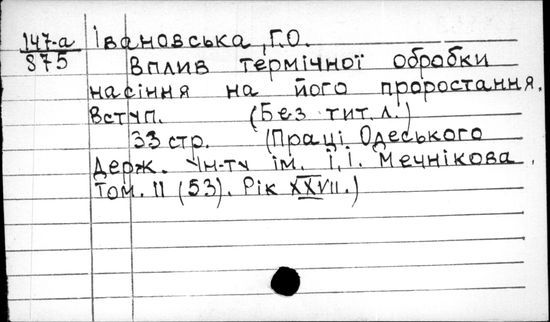 147-а Івановська, Г.О.
875 Вплив термічної обробки
насіння на його проростання.
Вступ. (Без тит. л.)
33 стр. (Праці Одеського
Держ. Ун-ту ім. І.І. Мечнікова.
Том. II (53). Рік XXVII.)